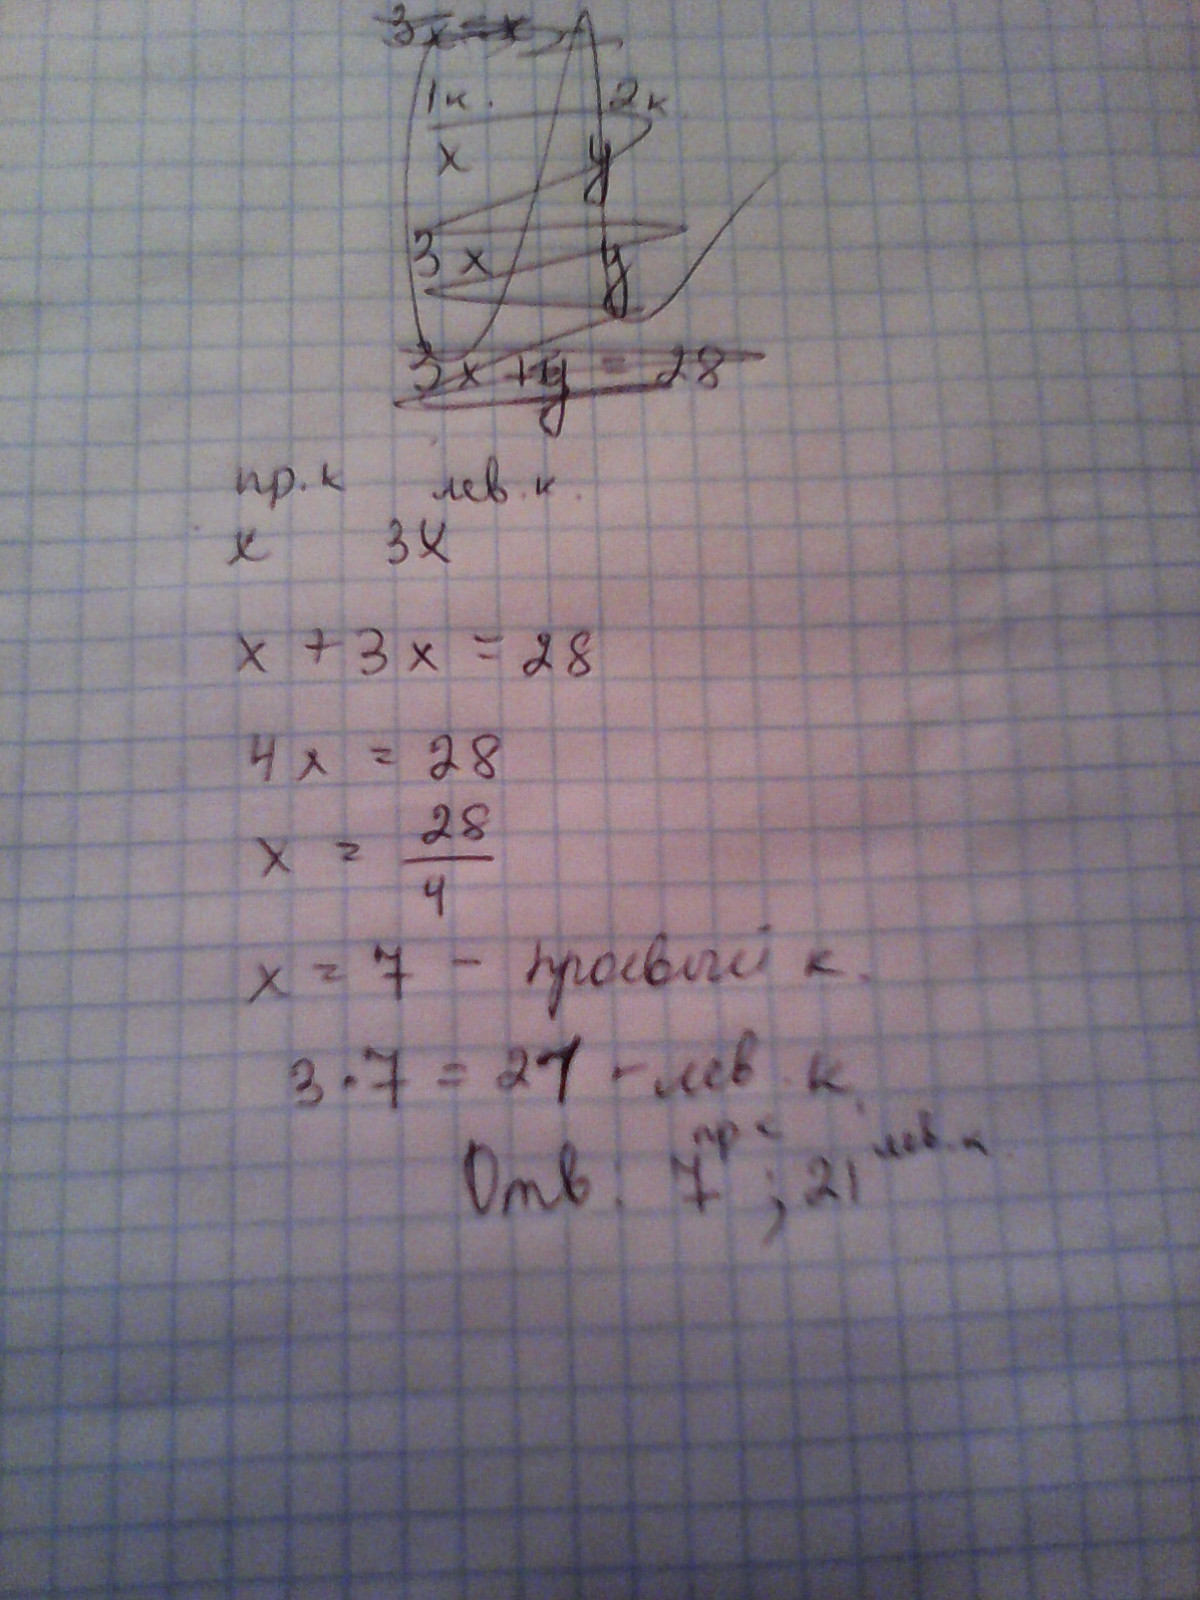 3x = x
1к. 2к
x у
3x у
3x + у = 28
пр.к лев.к.
x 3x
x + 3x = 28
4x = 28
x = 28/4
x = 7 - правый к.
3·7 = 21 - лев. к.
Отв: 7 пр к ; 21 лев. к.